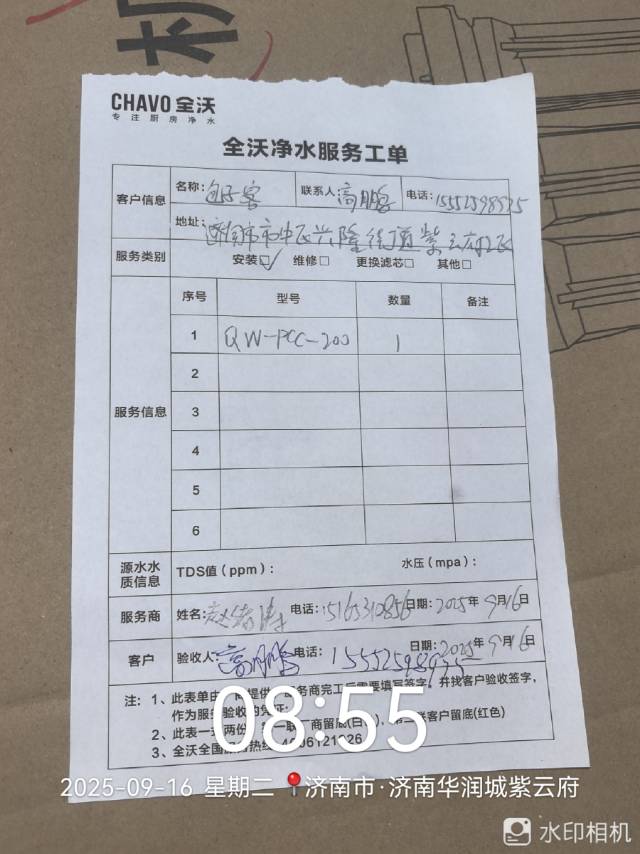 CHAVO 全沃
专注厨房净水
全沃净水服务工单
客户信息 名称: 联系人: 高鹏 电话:
地址: 济南市市中区兴隆街道紫云府
服务类别 安装☑ 维修□ 更换滤芯□ 其他□
服务信息 序号 型号 数量 备注
1 QW-PCC-200 1
2
3
4
5
6
源水水质信息 TDS值(ppm): 水压(mpa):
服务商 姓名: 电话: 15165310856 日期: 2025年9月16日
客户 验收人: 高鹏 电话: 日期: 2025年9月16日
注: 1、此表单由 提供 务商完工后需要填写签字,并找客户验收签字,
作为服务验收的凭证
2、此表一式两份 一联厂商留底(白 联客户留底(红色)
3、全沃全国 热线
08:55
2025-09-16 星期二 济南市·济南华润城紫云府
水印相机